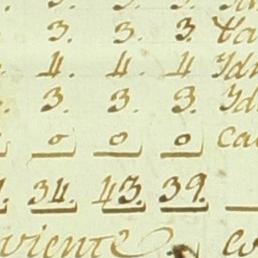 3. 3. 3.
3. 3. 3. Va
4. 4. 4 Id
3. 3. 3. Id
0 0 0 ca
34. 43. 39.
viente co